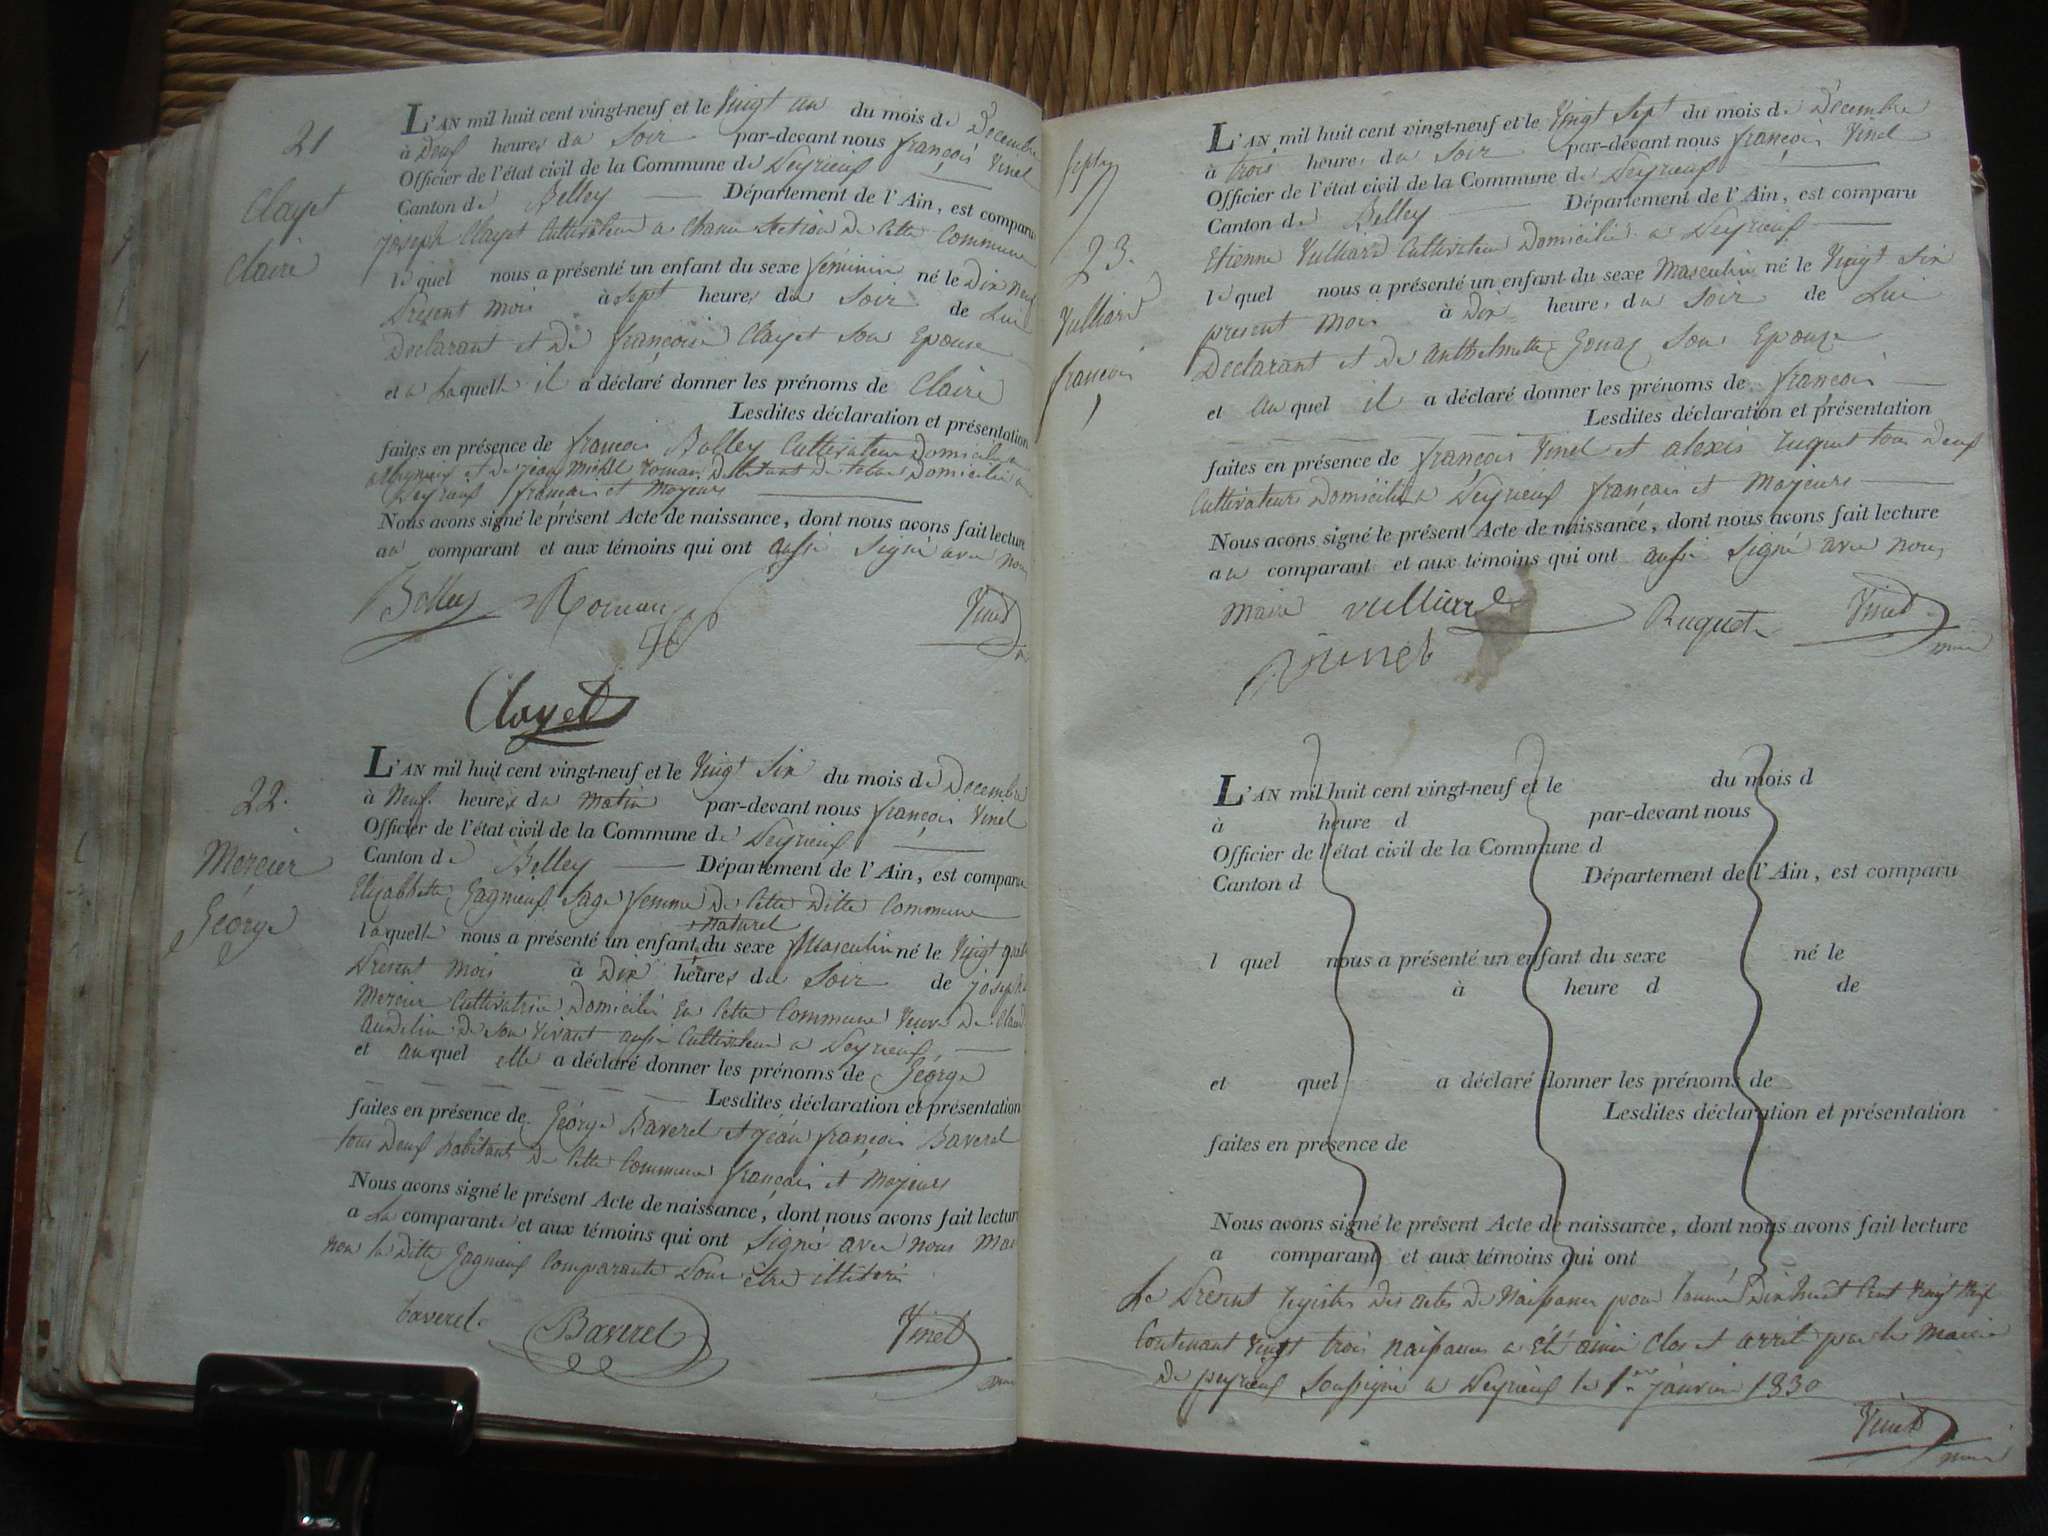 21
Clayet
Claire
L'AN mil huit cent vingt-neuf et le Vingt un du mois de Decembre
à Deux heures du Soir par-devant nous françois Vinet
Officier de l'état civil de la Commune de Peyrieux
Canton de Belley Département de l'Ain, est comparu
joseph Clayet Cultivateur a Section De Cette Commune
lequel nous a présenté un enfant du sexe féminin né le Dix neuf
Present mois à Sept heures du Soir de Lui
Declarant et De françoise Clayet Son Epouse
et a Laquelle il a déclaré donner les prénoms de Claire
Lesdites déclaration et présentation
faites en présence de françois Bolley Cultivateur Domicilié
et De jean Michel Roman Domicilié a
Peyrieux français et Majeurs
Nous avons signé le présent Acte de naissance, dont nous avons fait lecture
au comparant et aux témoins qui ont aussi Signé avec nous
Bolley Roman Vinet
Clayet
22.
Mercier
George
L'AN mil huit cent vingt-neuf et le Vingt Six du mois de Decembre
à Neuf heures du Matin par-devant nous françois Vinet
Officier de l'état civil de la Commune de Peyrieux
Canton de Belley Département de l'Ain, est comparu
Elizabette Gagneux Sage femme De Cette Ditte Commune
naturel
laquelle nous a présenté un enfant du sexe Masculin né le Vingt quatre
Present mois à Dix heures du Soir de josephe
Mercier Cultivatrice Domicilié En Cette Commune Veuve De Claude
De Son Vivant aussi Cultivateur a Peyrieux
et auquel elle a déclaré donner les prénoms de George
Lesdites déclaration et présentation
faites en présence de George Baverel et jean françois Baverel
tous Deux habitants De Cette Commune français et Majeurs
Nous avons signé le présent Acte de naissance, dont nous avons fait lecture
a La comparante et aux témoins qui ont Signé avec nous Mais
non la Ditte Gagneux Comparante Pour être illiterée
baverel Baverel Vinet
23.
Vulliard
françois
L'AN mil huit cent vingt-neuf et le Vingt Sept du mois de Decembre
à trois heures du Soir par-devant nous françois Vinet
Officier de l'état civil de la Commune de Peyrieux
Canton de Belley Département de l'Ain, est comparu
Etienne Vulliard Cultivateur Domicilié a Peyrieux
lequel nous a présenté un enfant du sexe Masculin né le Vingt Six
present mois à Dix heures du Soir de Lui
Declarant et De Anthelmette Son Epouse
et auquel il a déclaré donner les prénoms de françois
Lesdites déclaration et présentation
faites en présence de françois Vinet et alexis ruguet tous Deux
Cultivateurs Domiciliés a Peyrieux français et Majeurs
Nous avons signé le présent Acte de naissance, dont nous avons fait lecture
au comparant et aux témoins qui ont aussi Signé avec nous
vulliard Ruguet Vinet
maire
vinet
L'AN mil huit cent vingt-neuf et le du mois d
à heure d par-devant nous
Officier de l'état civil de la Commune d
Canton d Département de l'Ain, est comparu
l quel nous a présenté un enfant du sexe né le
à heure d de
et quel a déclaré donner les prénoms de
Lesdites déclaration et présentation
faites en présence de
Nous avons signé le présent Acte de naissance, dont nous avons fait lecture
a comparant et aux témoins qui ont
Le Present registre des actes de Naissances pour l'année Dix huit Cent Vingt Neuf
Contenant Vingt trois naissances a été ainsi Clos et arrêté par le Maire
De peyrieux Soussigné a Peyrieux le 1er janvier 1830
Vinet
maire